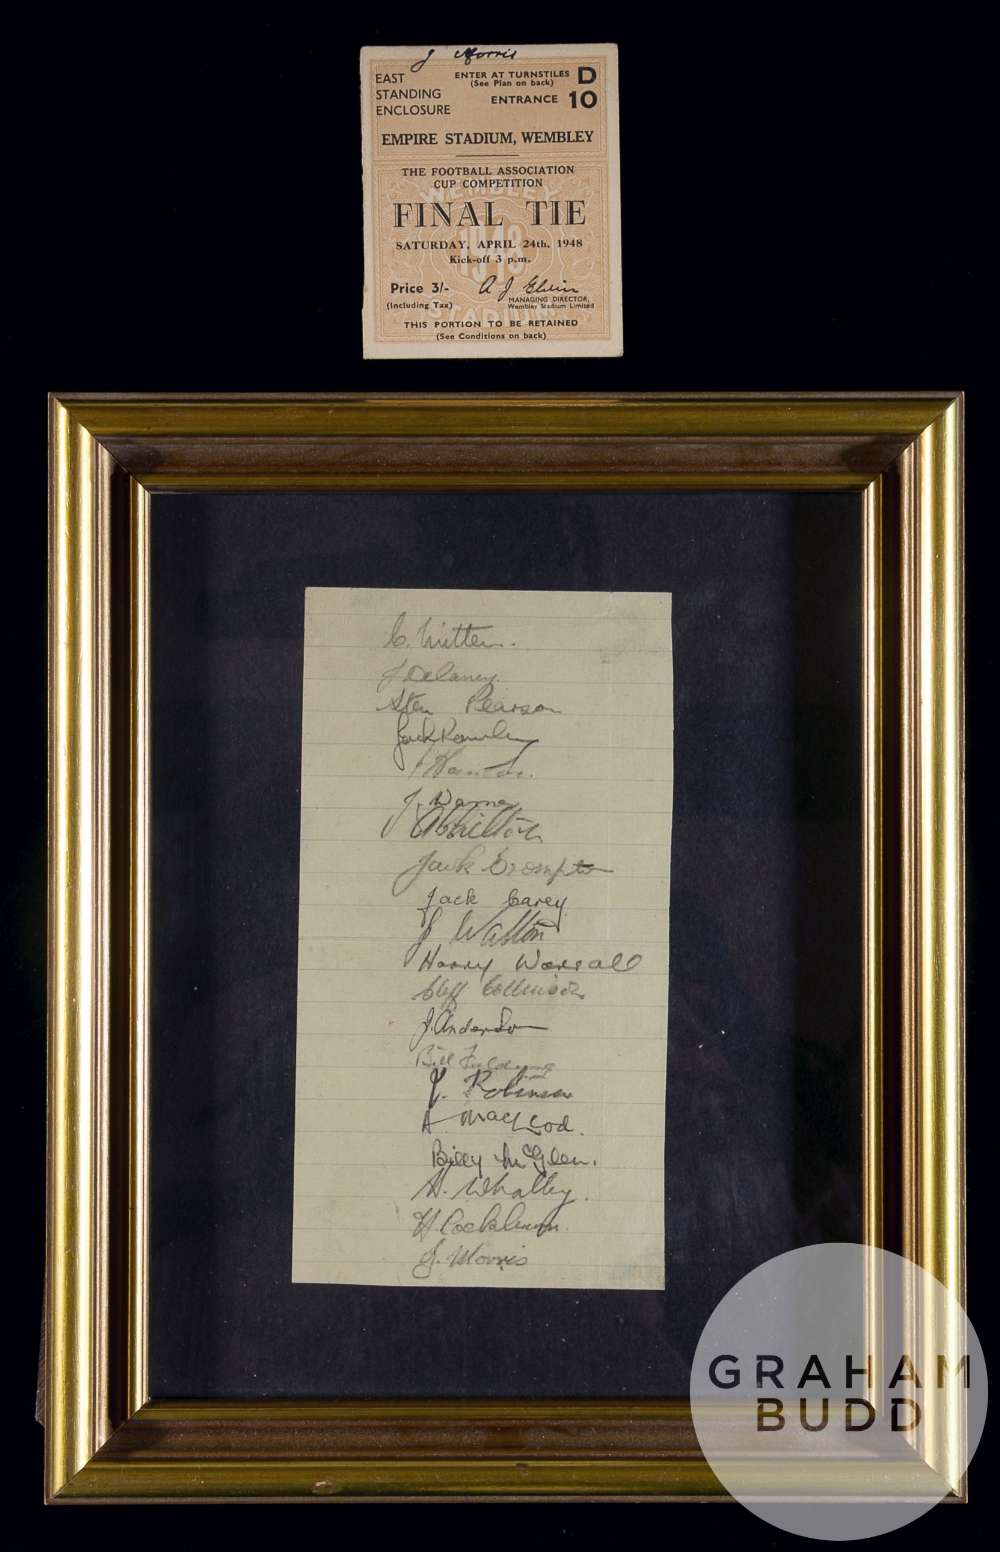 J Morris
EAST
STANDING
ENCLOSURE
ENTER AT TURNSTILES D
(See Plan on back)
ENTRANCE 10
EMPIRE STADIUM, WEMBLEY
THE FOOTBALL ASSOCIATION
CUP COMPETITION
WEMBLEY
FINAL TIE
1948
SATURDAY, APRIL 24th, 1948
Kick-off 3 p.m.
Price 3/-
(Including Tax)
A J Elvin
MANAGING DIRECTOR,
Wembley Stadium Limited
STADIUM
THIS PORTION TO BE RETAINED
(See Conditions on back)
C. Mitten.
J Delaney.
Stan Pearson
Jack Rowley
J. Warner
A Chilton
Jack Crompton
Jack Carey
J Walton
Harry Worrall
Cliff Collinson
J. Anderson
Bill
J. Robinson
A MacLeod.
Billy McGlen.
H. Whalley.
H. Cockburn.
J. Morris
GRAHAM
BUDD